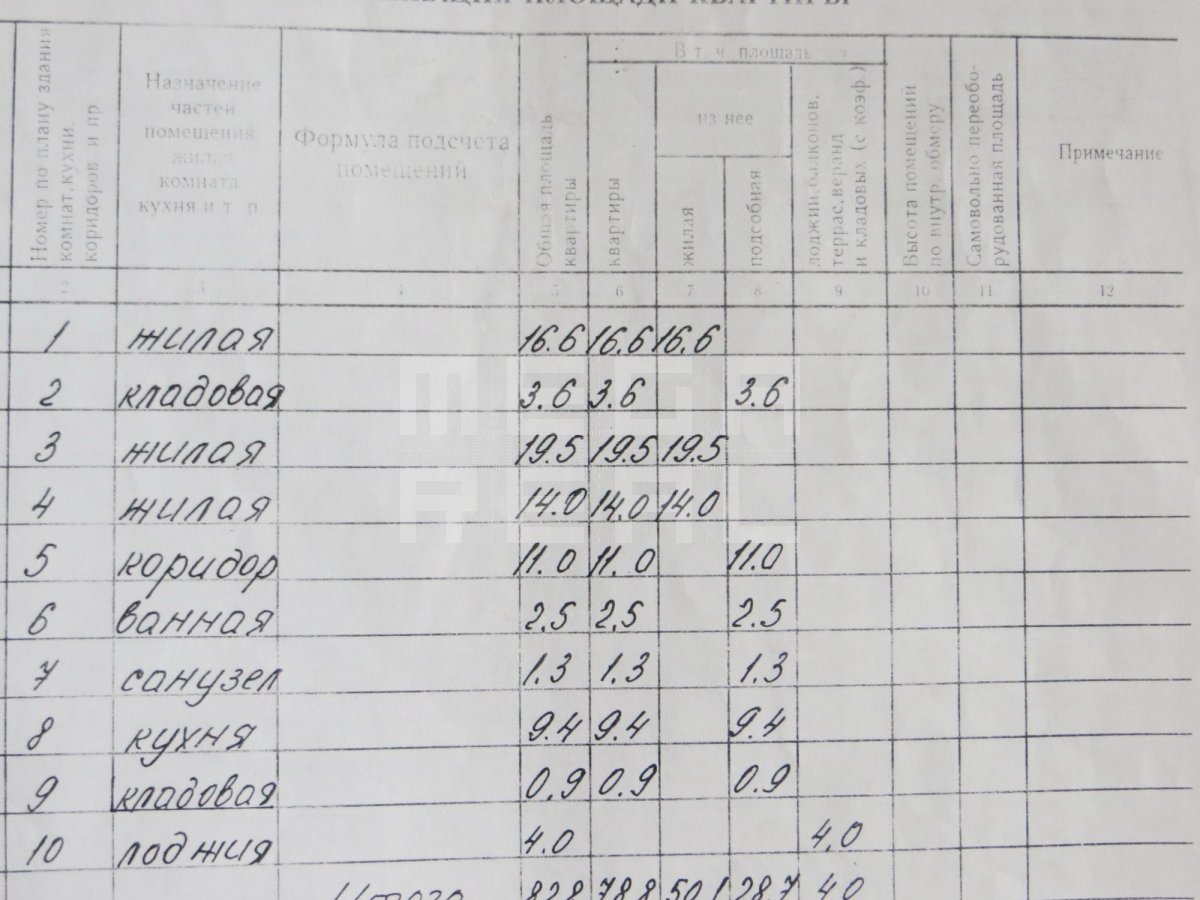 ПЛОЩАДИ КВАРТИРЫ
Номер по плану здания комнат, кухни, коридоров и пр
Назначение частей помещения: жилая комната кухня и т. п
Формула подсчета помещений
Общая площадь квартиры
В т. ч. площадь
квартиры
из нее
жилая
подсобная
лоджий, балконов, террас, веранд и кладовых (с коэф.)
Высота помещений по внутр. обмеру
Самовольно переоборудованная площадь
Примечание
2 3 4 5 6 7 8 9 10 11 12
1 жилая 16.6 16.6 16.6
2 кладовая 3.6 3.6 3.6
3 жилая 19.5 19.5 19.5
4 жилая 14.0 14.0 14.0
5 коридор 11.0 11.0 11.0
6 ванная 2.5 2.5 2.5
7 санузел 1.3 1.3 1.3
8 кухня 9.4 9.4 9.4
9 кладовая 0.9 0.9 0.9
10 лоджия 4.0 4.0
Итого 82.8 78.8 50.1 28.7 4.0